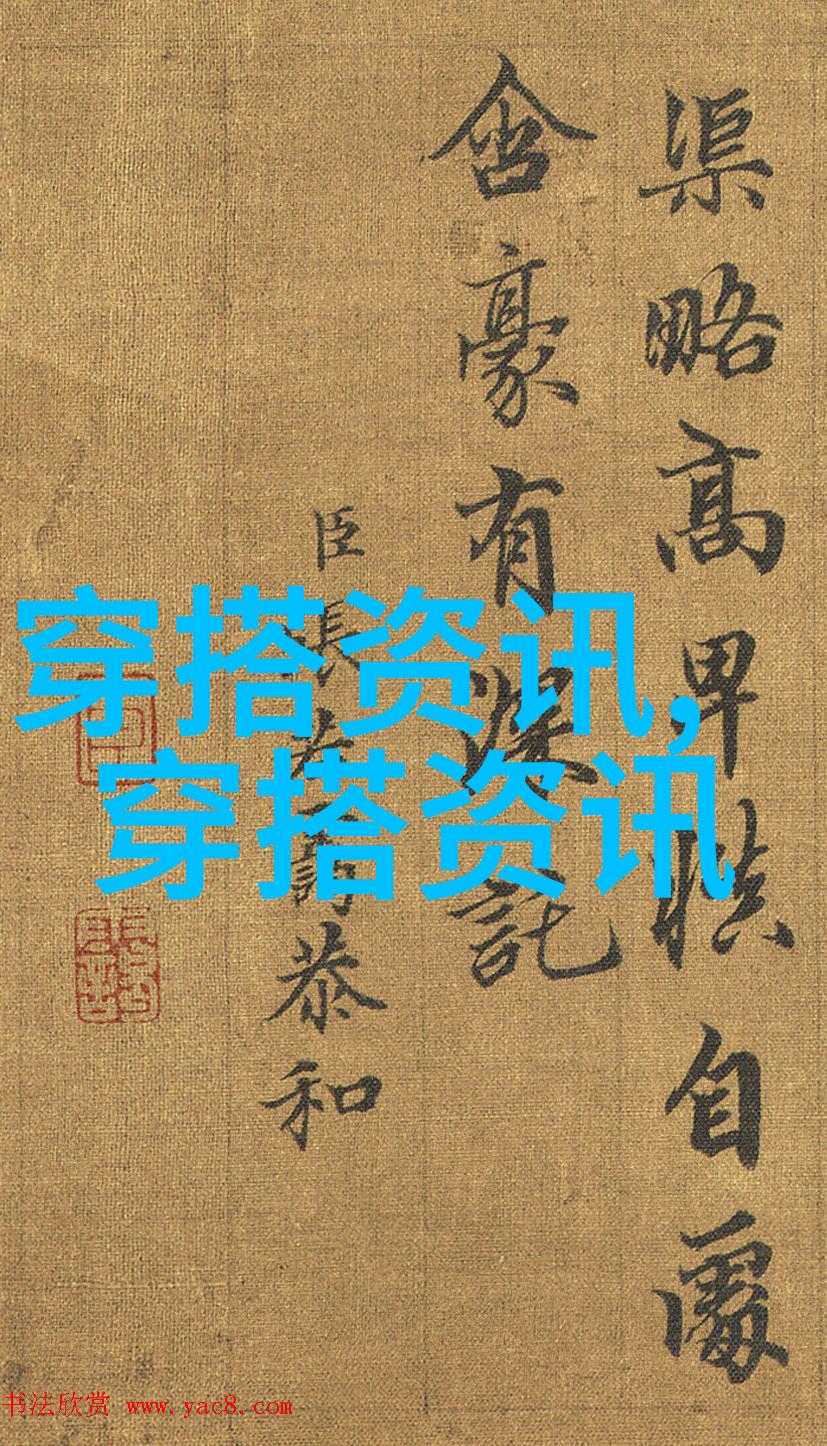 渠略高卑横自處
含豪有深託
臣張恭和
穿搭资讯,
穿搭资讯
书法欣赏 www.yac8.com